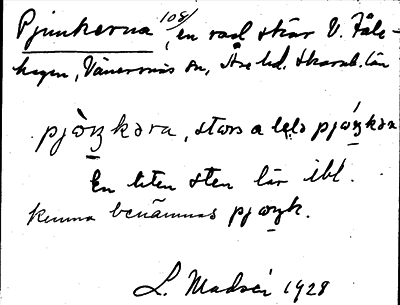 Pjunkerna 108/, en rad skär V. Fåle-
hagen, Vänersnäs sn, Åse hd. Skarab. län
pjò̱ŋkəra, stora o lela pjó̱ŋkəra
En liten sten lär ibl.
kunna benämnas pjo̱ŋk.
L. Madsén 1928